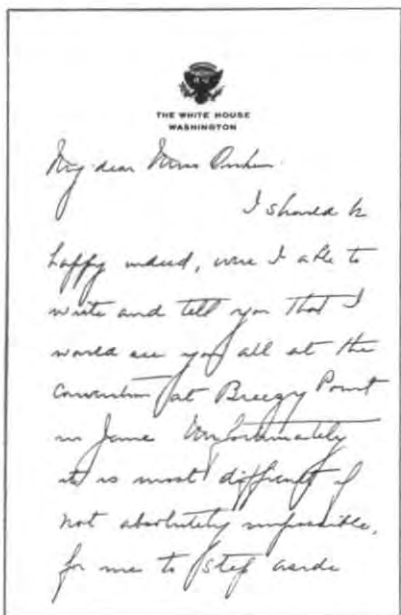 THE WHITE HOUSE
WASHINGTON
My dear Miss
I should be
happy indeed, were I able to
write and tell you that I
would see you all at the
Convention at Breezy Point
in June Unfortunately
it is most difficult if
not absolutely impossible,
for me to step aside